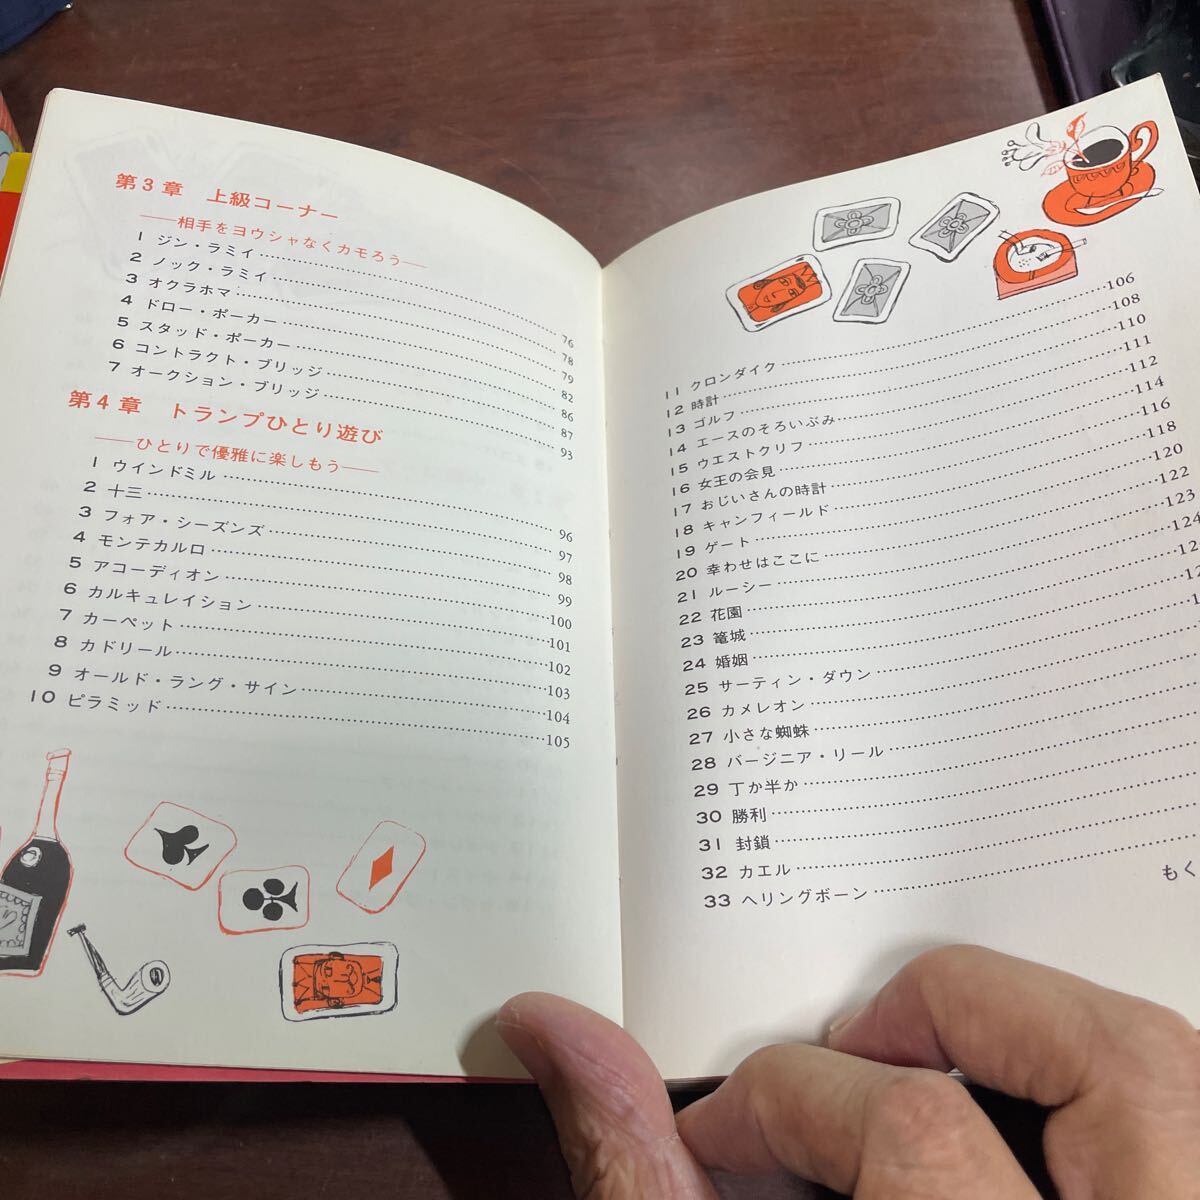 第3章 上級コーナー
――相手をヨウシャなくカモろう――
1 ジン・ラミイ……………76
2 ノック・ラミイ……………78
3 オクラホマ……………79
4 ドロー・ポーカー……………82
5 スタッド・ポーカー……………86
6 コントラクト・ブリッジ……………87
7 オークション・ブリッジ……………93
第4章 トランプひとり遊び
――ひとりで優雅に楽しもう――
1 ウインドミル……………96
2 十三……………97
3 フォア・シーズンズ……………98
4 モンテカルロ……………99
5 アコーディオン……………100
6 カルキュレイション……………101
7 カーペット……………102
8 カドリール……………103
9 オールド・ラング・サイン……………104
10 ピラミッド……………105
11 クロンダイク……………106
12 時計……………108
13 ゴルフ……………110
14 エースのそろいぶみ……………111
15 ウエストクリフ……………112
16 女王の会見……………114
17 おじいさんの時計……………116
18 キャンフィールド……………118
19 ゲート……………120
20 幸わせはここに……………122
21 ルーシー……………123
22 花園……………124
23 篭城……………
24 婚姻……………
25 サーティン・ダウン……………
26 カメレオン……………
27 小さな蜘蛛……………
28 バージニア・リール……………
29 丁か半か……………
30 勝利……………
31 封鎖……………
32 カエル……………
33 ヘリングボーン……………
もく